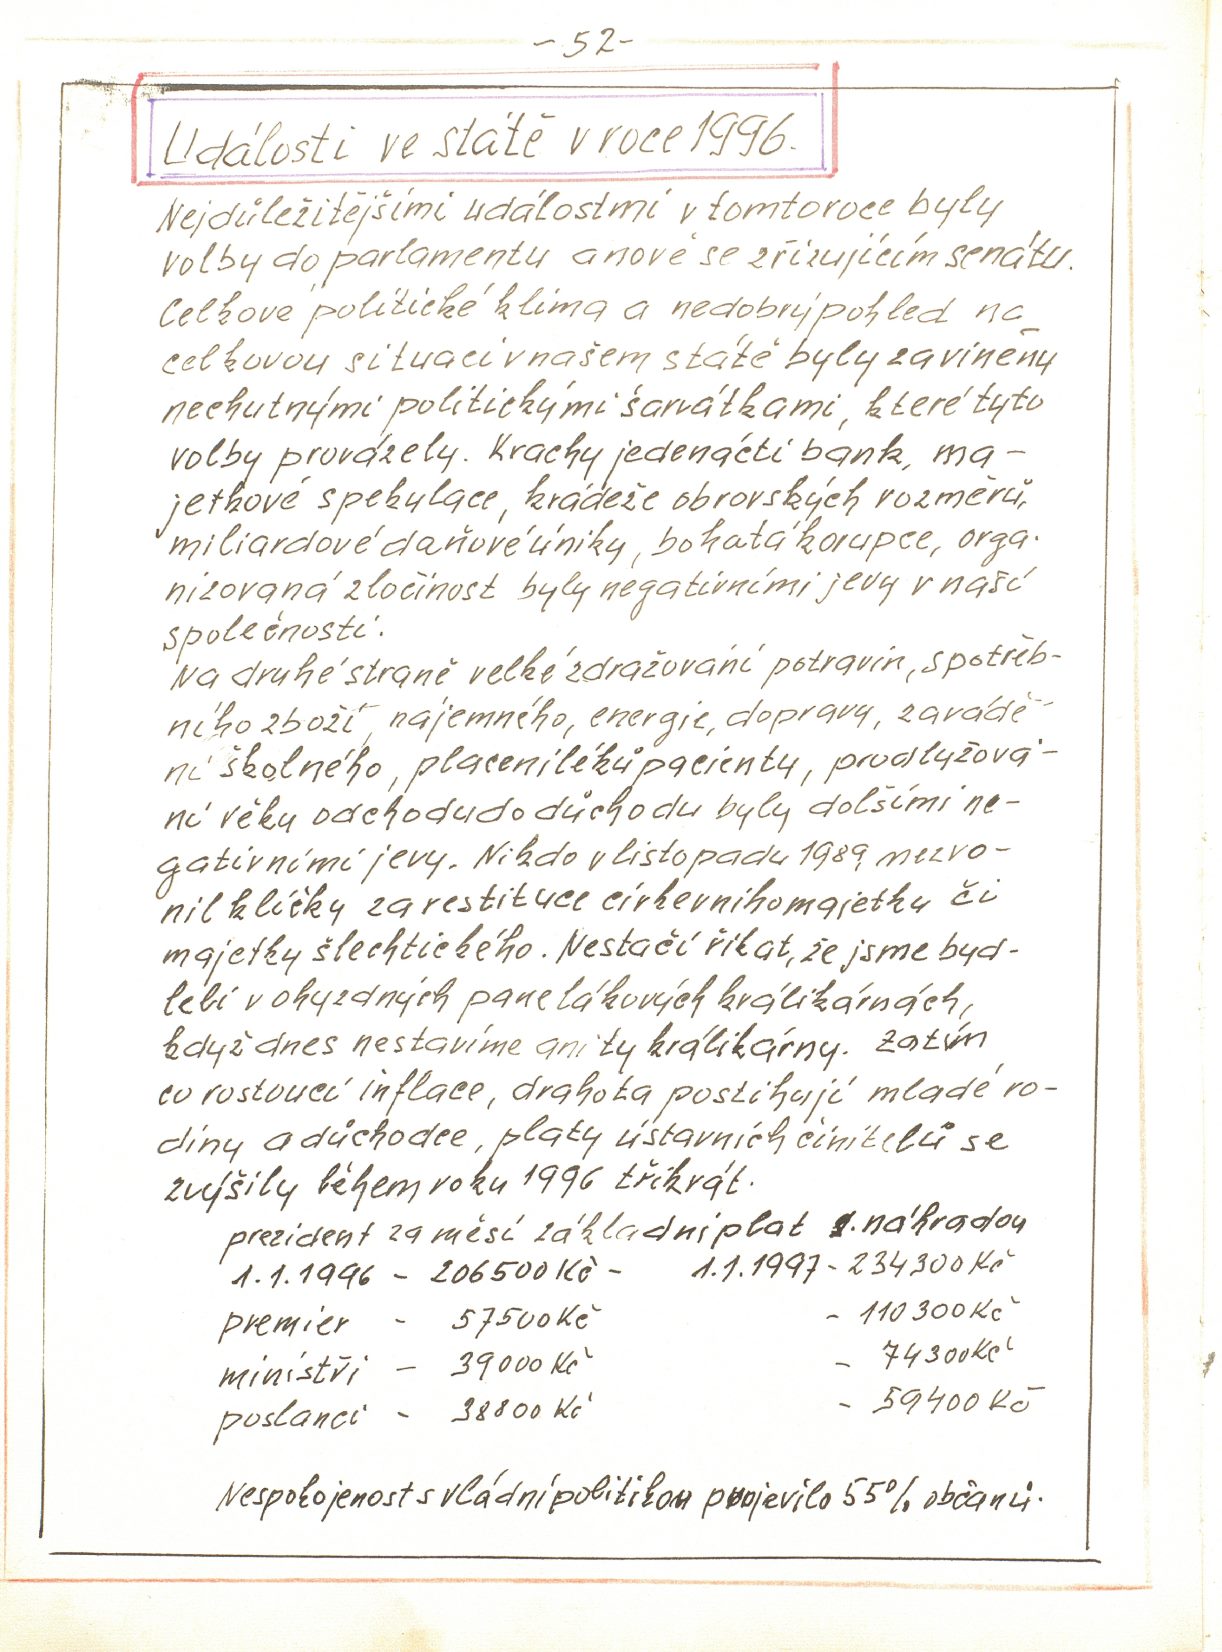 - 52 -
Události ve státě v roce 1996.
Nejdůležitějšími událostmi v tomto roce byly
volby do parlamentu a nově se zřizujícím senátu.
Celkové politické klima a nedobrý pohled na
celkovou situaci v našem státě byly zaviněny
nechutnými politickými šarvátkami, které tyto
volby provázely. Krachy jedenácti bank, ma-
jetkové spekulace, krádeže obrovských rozměrů,
miliardové daňové úniky, bohatá korupce, orga-
nizovaná zločinost byly negativními jevy v naší
společnosti.
Na druhé straně velké zdražování potravin, spotřeb-
ního zboží, nájemného, energie, dopravy, zavádě-
ní školného, placení léků pacienty, prodlyžová-
ní věku odchodu do důchodu byly dolšími ne-
gativními jevy. Nikdo v listopadu 1989 nezvo-
nil klíčky za restituce církevního majetku či
majetky šlechtického. Nestačí říkat, že jsme byd-
leli v ohyzdných panelákových králikárnách,
když dnes nestavíme ani ty králikárny. Zatím
co rostoucí inflace, drahota postihují mladé ro-
diny a důchodce, platy ústavních činitelů se
zvýšily během roku 1996 třikrát.
prezident za měsí základní plat s. náhradou
1.1.1996 - 206500 Kč - 1.1.1997 - 234300 Kč
premier - 57500 Kč - 110300 Kč
ministři - 39000 Kč - 74300 Kč
poslanci - 38800 Kč - 59400 Kč
Nespokojenost s vládní politikou projevilo 55% občanů.